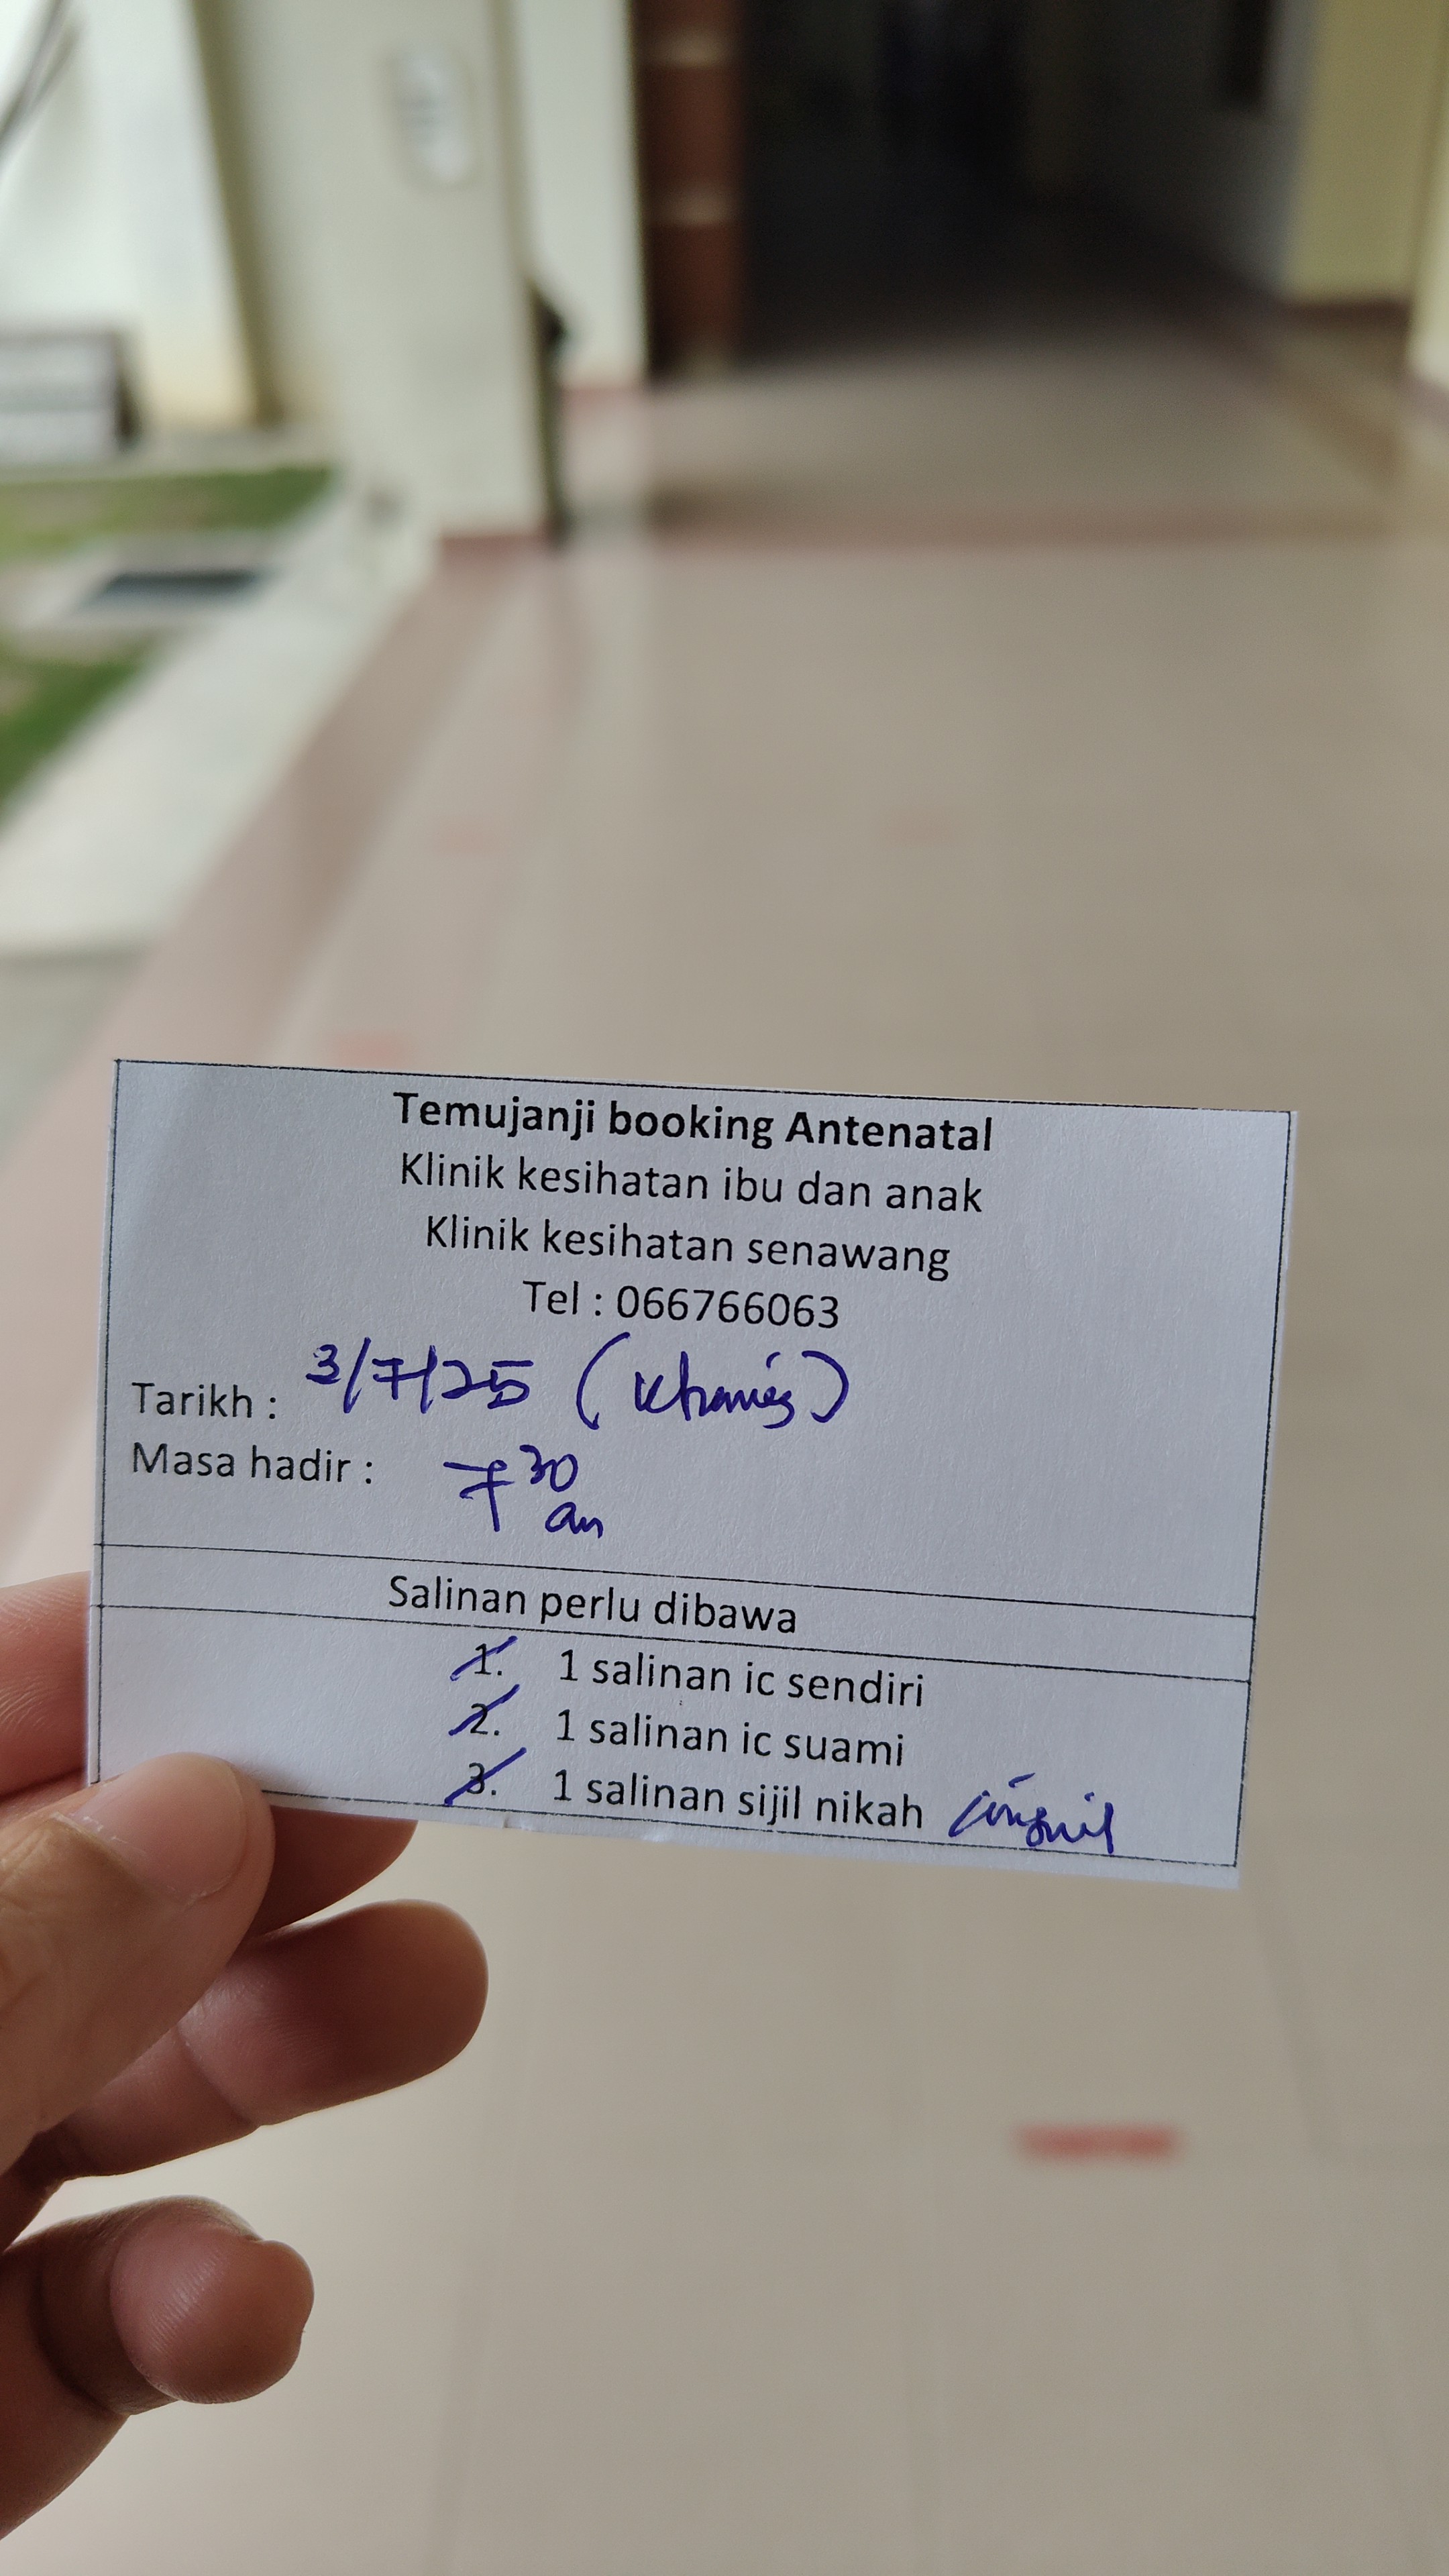 Temujanji booking Antenatal
Klinik kesihatan ibu dan anak
Klinik kesihatan senawang
Tel : 066766063
Tarikh : 3/7/25 (Khamis)
Masa hadir : 7 30 am
Salinan perlu dibawa
1. 1 salinan ic sendiri
2. 1 salinan ic suami
3. 1 salinan sijil nikah